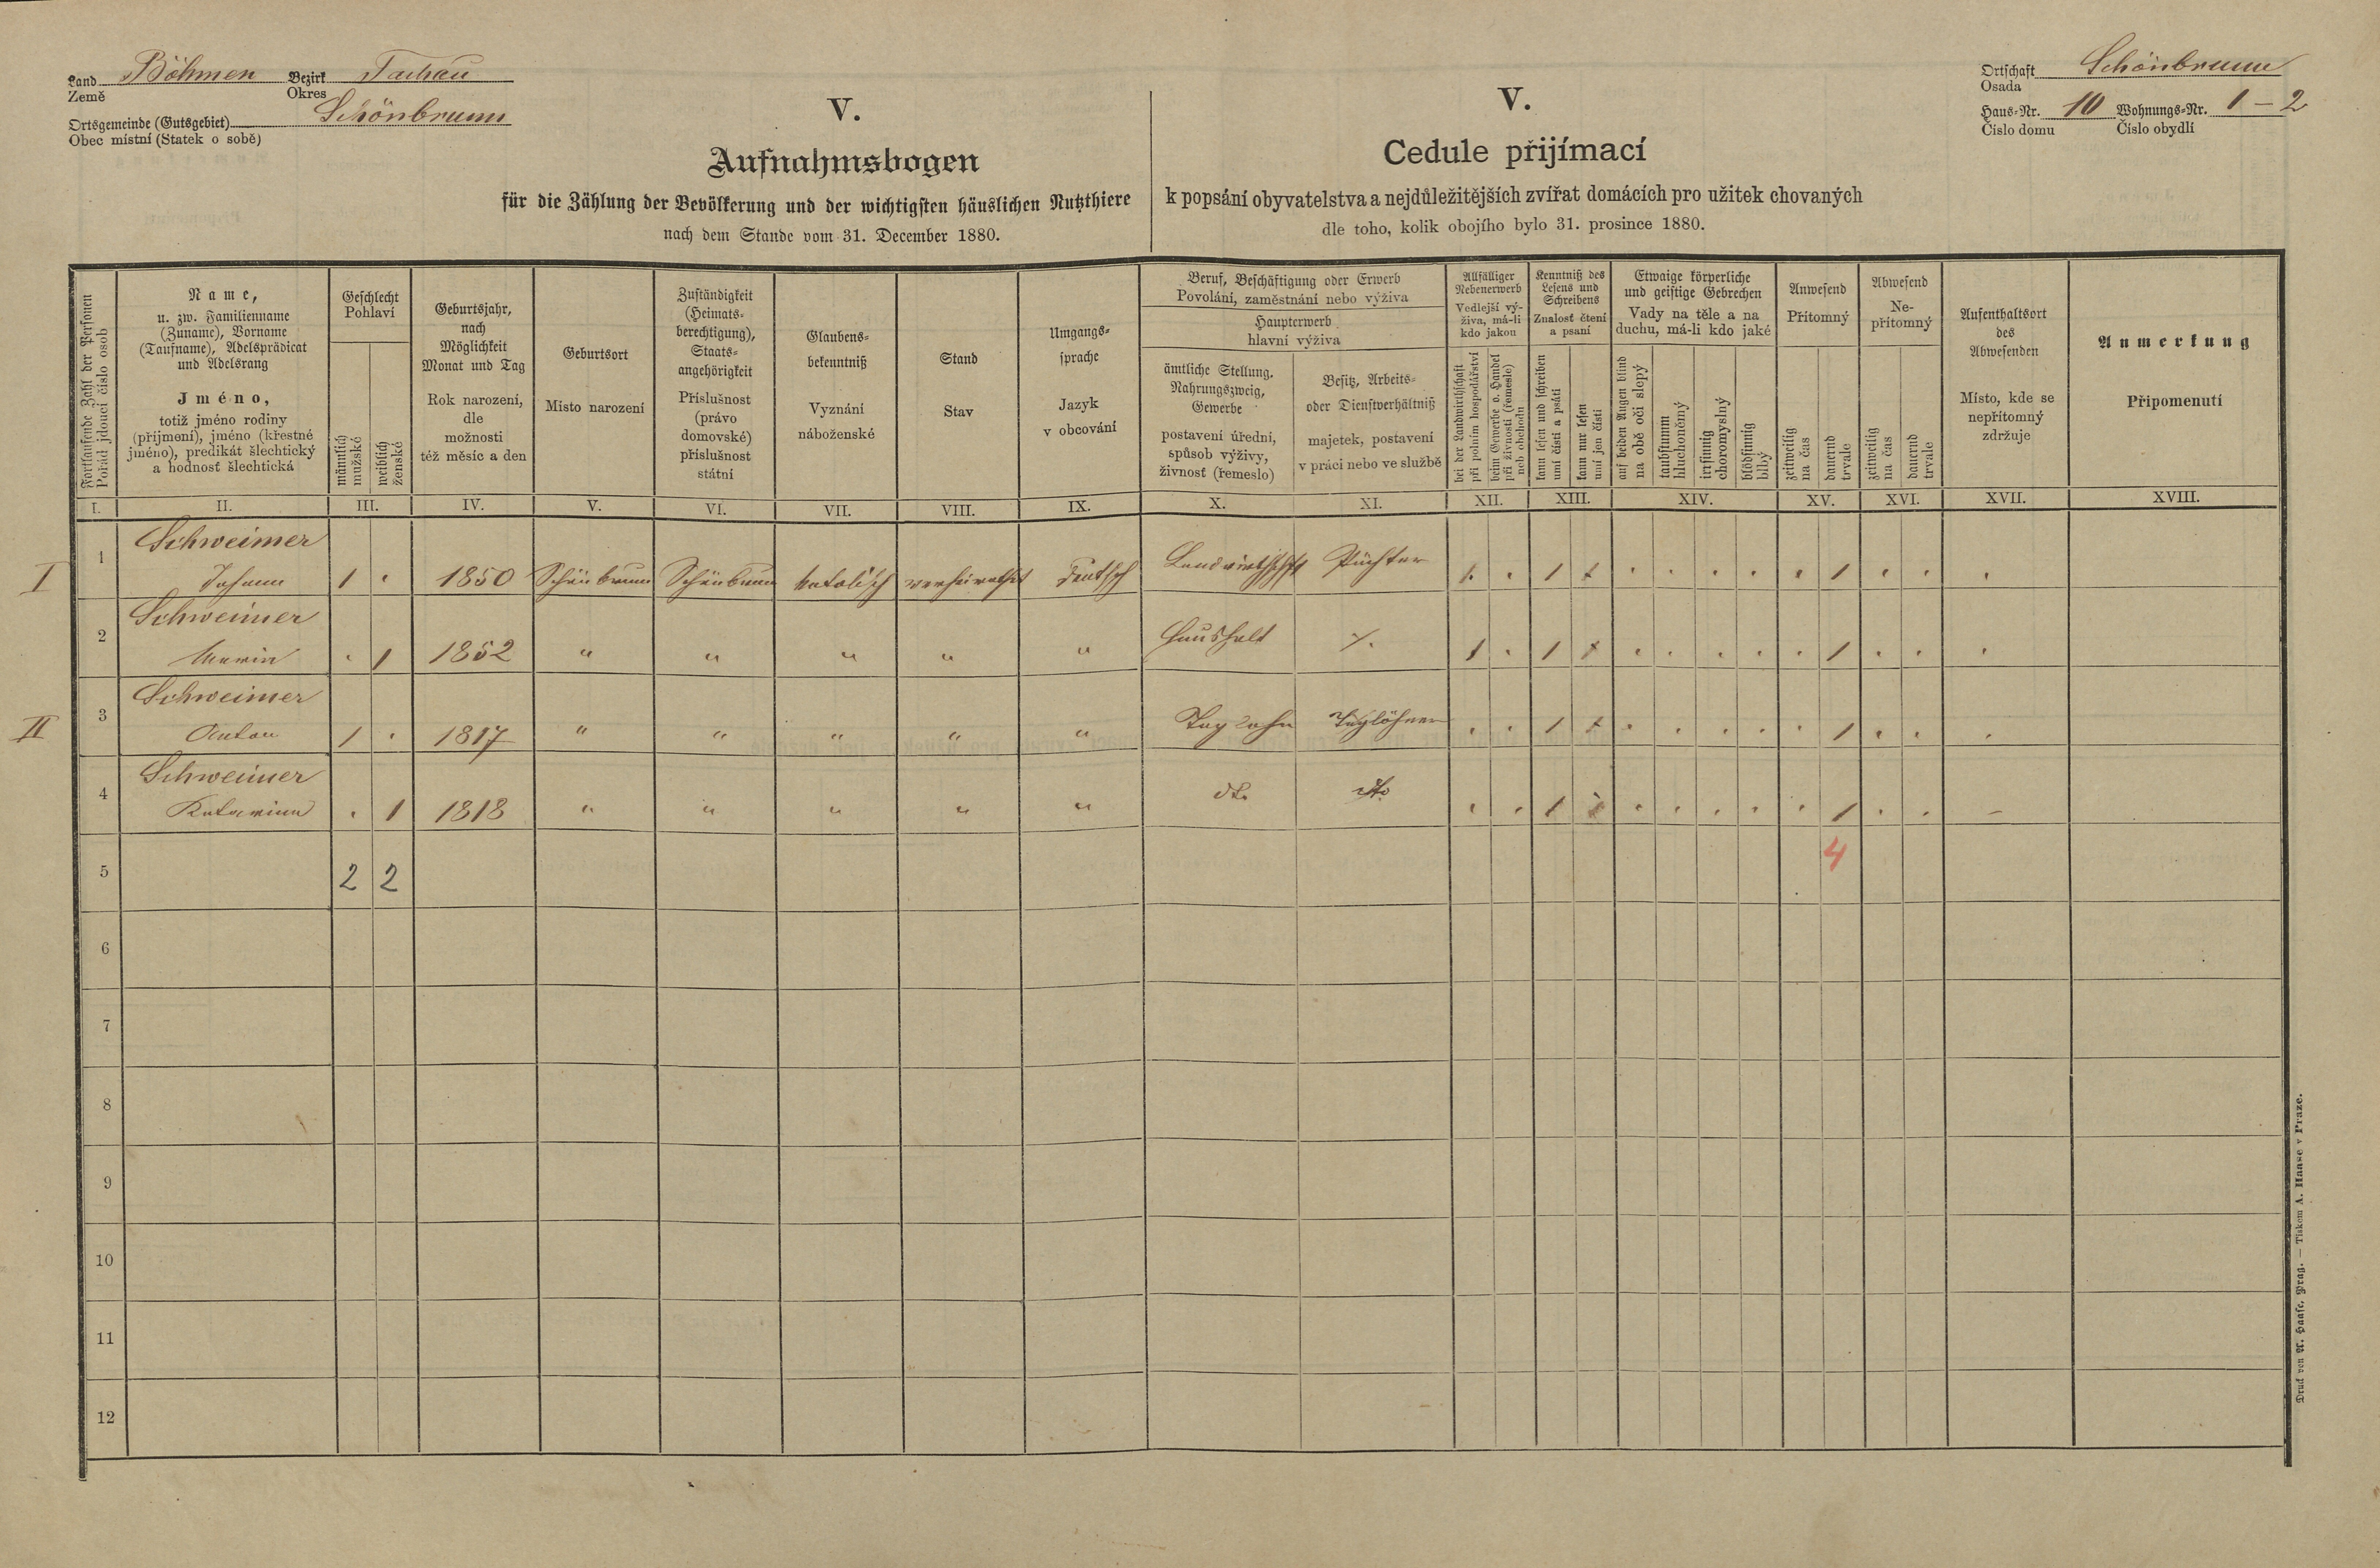 Land Böhmen Bezirk Tachau
Země Okres
Ortsgemeinde (Gutsgebiet) Schönbrunn
Obec místní (Statek o sobě)
V.
Aufnahmsbogen
für die Zählung der Bevölkerung und der wichtigsten häuslichen Nutzthiere
nach dem Stande vom 31. December 1880.
V.
Cedule přijímací
k popsání obyvatelstva a nejdůležitějších zvířat domácích pro užitek chovaných
dle toho, kolik obojího bylo 31. prosince 1880.
Ortschaft Schönbrunn
Osada
Haus-Nr. 10 Wohnungs-Nr. 1 – 2
Číslo domu Číslo obydlí
Fortlaufende Zahl der Personen
Pořád jdoucí číslo osob
Name,
u. zw. Familienname
(Zuname), Vorname
(Taufname), Adelsprädicat
und Adelsrang
Jméno,
totiž jméno rodiny
(příjmení), jméno (křestné
jméno), predikát šlechtický
a hodnosť šlechtická
Geschlecht
Pohlaví
männlich
mužské
weiblich
ženské
Geburtsjahr,
nach
Möglichkeit
Monat und Tag
Rok narození,
dle
možnosti
též měsíc a den
Geburtsort
Místo narození
Zuständigkeit
(Heimats-
berechtigung),
Staats-
angehörigkeit
Příslušnost
(právo
domovské)
příslušnost
státní
Glaubens-
bekenntniß
Vyznání
náboženské
Stand
Stav
Umgangs-
sprache
Jazyk
v obcování
Beruf, Beschäftigung oder Erwerb
Povolání, zaměstnání nebo výživa
Haupterwerb
hlavní výživa
ämtliche Stellung,
Nahrungszweig,
Gewerbe
postavení úřední,
spůsob výživy,
živnost (řemeslo)
Besitz, Arbeits-
oder Dienstverhältniß
majetek, postavení
v práci nebo ve službě
Allfälliger
Nebenerwerb
Vedlejší vý-
živa, má-li
kdo jakou
bei der Landwirthschaft
při polním hospodářství
beim Gewerbe o. Handel
při živnosti (řemesle)
neb obchodu
Kenntniß des
Lesens und
Schreibens
Znalosť čtení
a psaní
kann lesen und schreiben
umí čísti a psáti
kann nur lesen
umí jen čísti
Etwaige körperliche
und geistige Gebrechen
Vady na těle a na
duchu, má-li kdo jaké
auf beiden Augen blind
na obě oči slepý
taubstumm
hluchoněmý
irrsinnig
choromyslný
blödsinnig
blbý
Anwesend
Přítomný
zeitweilig
na čas
dauernd
trvale
Abwesend
Ne-
přítomný
zeitweilig
na čas
dauernd
trvale
Aufenthaltsort
des
Abwesenden
Místo, kde se
nepřítomný
zdržuje
Anmerkung
Připomenutí
I. II. III. IV. V. VI. VII. VIII. IX. X. XI. XII. XIII. XIV. XV. XVI. XVII. XVIII.
I 1 Schweimer
Johann 1 . 1850 Schönbrunn Schönbrunn katolisch verheirathet deutsch Landwirthschft Pächter 1 . 1 1 . . . . . 1 . . .
2 Schweimer
Maria . 1 1852 " " " " " Haushalt /. 1 . 1 1 . . . . . 1 . . .
II 3 Schweimer
Anton 1 . 1817 " " " " " Taglohn Taglöhner . . 1 1 . . . . . 1 . . .
4 Schweimer
Katarina . 1 1818 " " " " " dto. dto. . . 1 1 . . . . . 1 . . –
5 2 2 4
6
7
8
9
10
11
12
Druck von A. Haase, Prag. — Tiskem A. Haase v Praze.